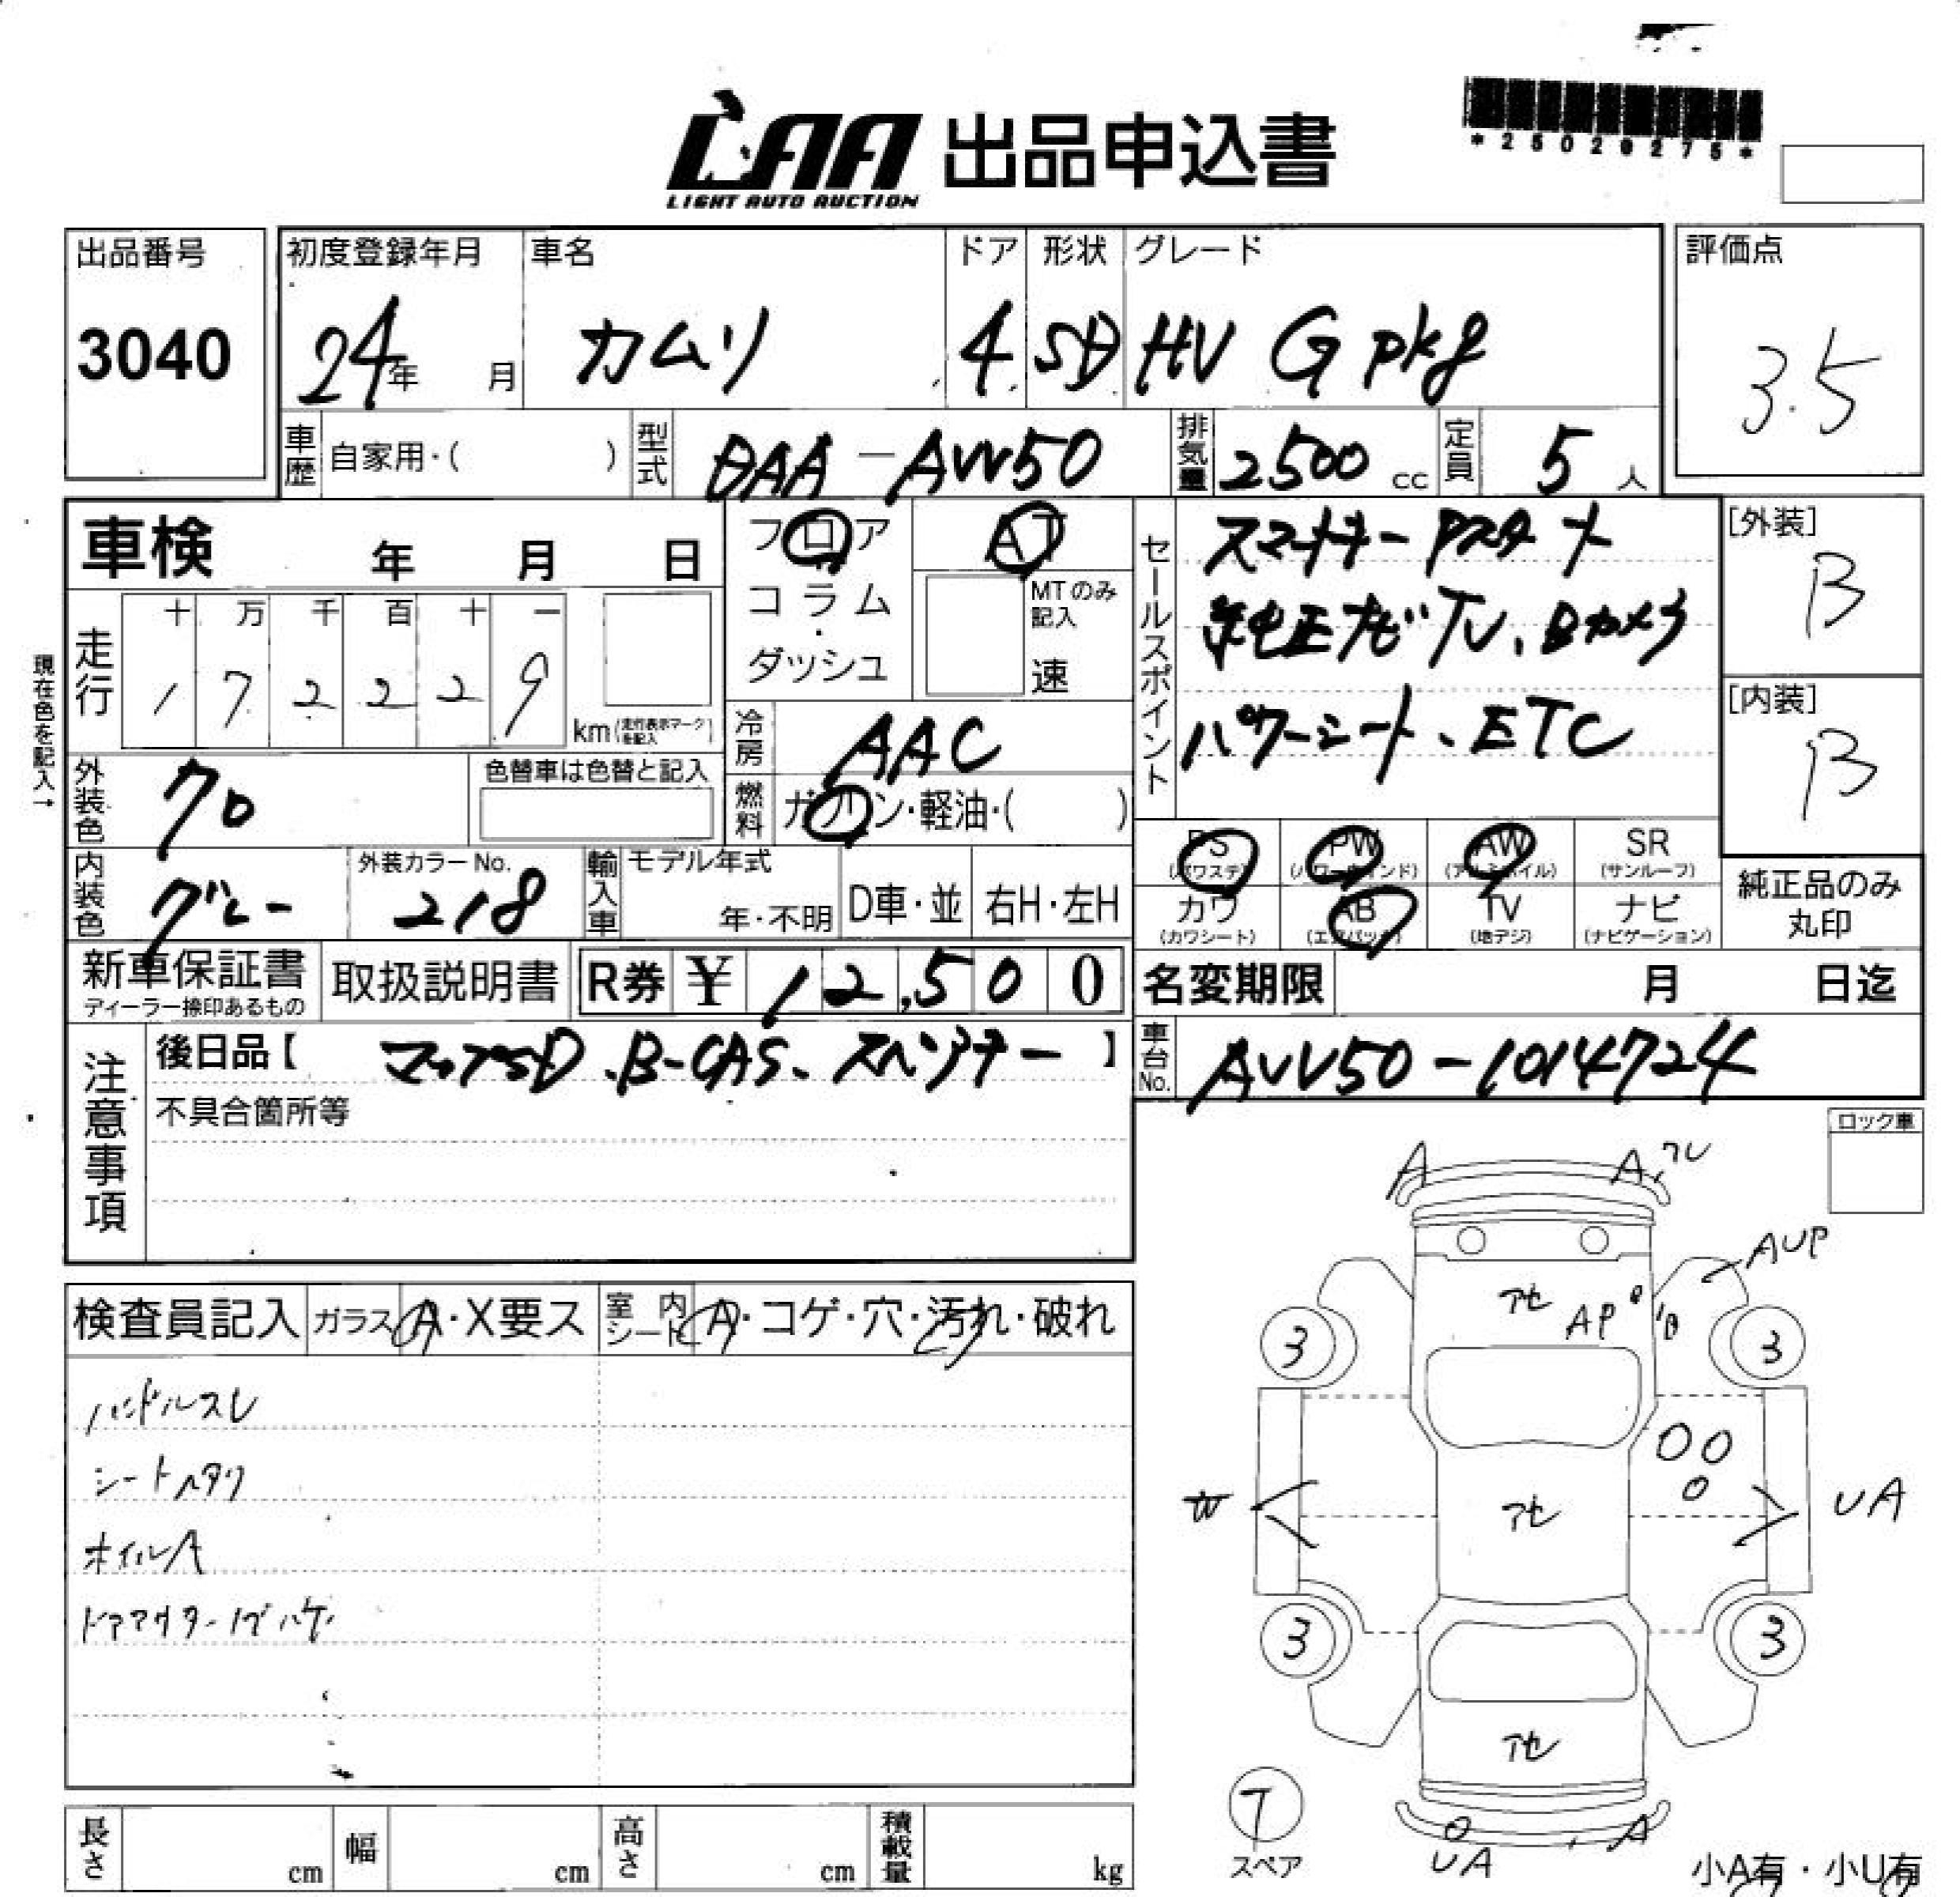 LAA 出品申込書
LIGHT AUTO AUCTION
*25029275*
出品番号
3040
初度登録年月
24年 月
車名
カムリ
ドア
4
形状
SD
グレード
HV G pkg
評価点
3.5
車歴
自家用・( )
型式
DAA-AVV50
排気量
2500 cc
定員
5 人
車検 年 月 日
フロア
コラム
・
ダッシュ
AT
MTのみ
記入
速
セールスポイント
スマートキー Pスタート
純正ナビTV、Bカメラ
パワーシート、ETC
[外装]
B
[内装]
B
現在色を記入→
走行
十 万 千 百 十 一
1 7 2 2 2 9
km(走行表示マークを記入)
冷房
AAC
燃料
ガソリン・軽油・( )
外装色
クロ
色替車は色替と記入
内装色
グレー
外装カラーNo.
218
輸入車
モデル年式
年・不明
D車・並
右H・左H
PS
(パワステ)
PW
(パワーウインド)
AW
(アルミホイル)
SR
(サンルーフ)
カワ
(カワシート)
AB
(エアバック)
TV
(地デジ)
ナビ
(ナビゲーション)
純正品のみ
丸印
新車保証書
ディーラー捺印あるもの
取扱説明書
R券 ¥ 12,500
名変期限 月 日迄
車台No.
AVV50-1014724
注意事項
後日品【 B-CAS、スペアキー 】
不具合箇所等
ロック車
検査員記入
ガラス A・X要ス
室内シート A・コゲ・穴・汚れ・破れ
ハンドルスレ
シートヘタリ
ホイルA
ドアアウターノブハゲ
A
A,ワレ
AUP
アセ
AP
B
3
3
アセ
W
UA
3
3
アセ
T
スペア
UA
A
長さ cm
幅 cm
高さ cm
積載量 kg
小A有・小U有